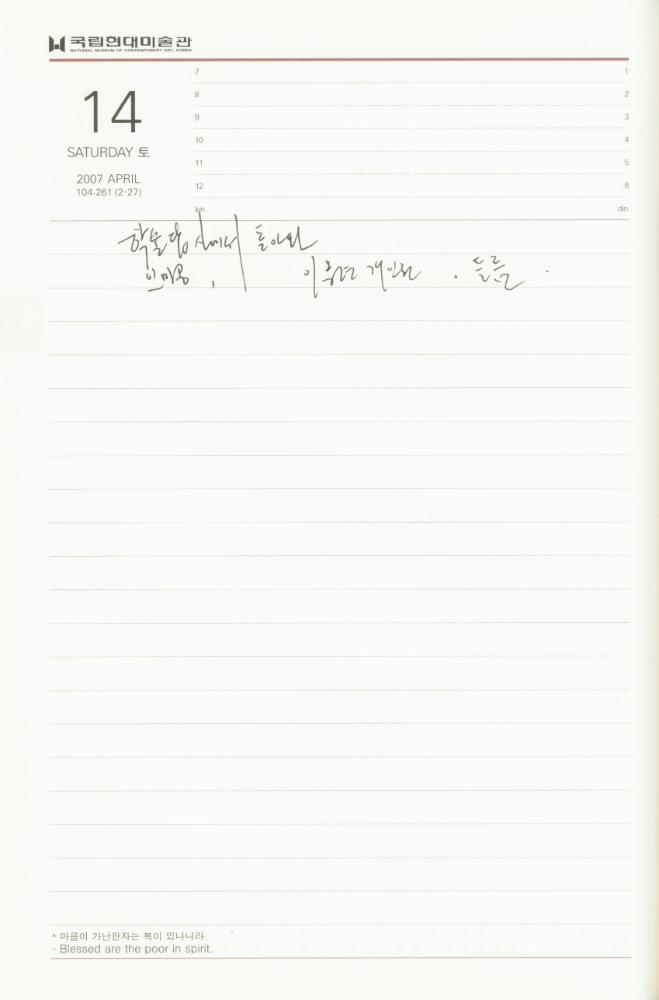 국립현대미술관
NATIONAL MUSEUM OF CONTEMPORARY ART, KOREA
14
SATURDAY 토
2007 APRIL
104-261 (2-27)
7
8
9
10
11
12
lun.
1
2
3
4
5
6
din.
에서 돌아와
인미공, 개인전. 들름.
* 마음이 가난한자는 복이 있나니라.
- Blessed are the poor in spirit.